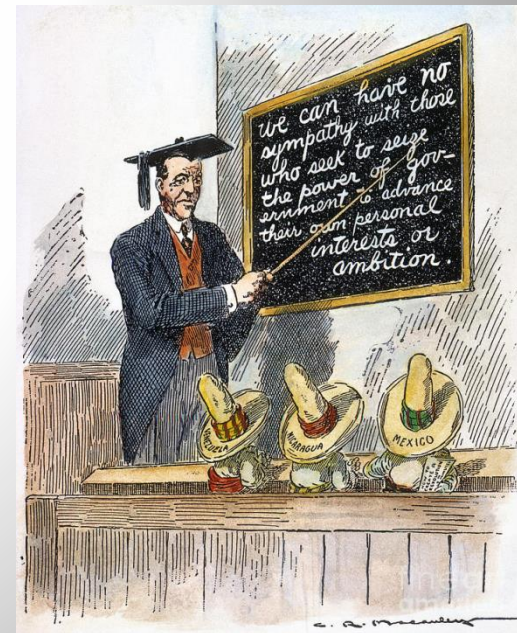 we can have no
sympathy with those
who seek to seize
the power of gov-
ernment to advance
their own personal
interests or
ambition.
VENEZUELA
NICARAGUA
MEXICO
C. R. Macauley
fine art
america